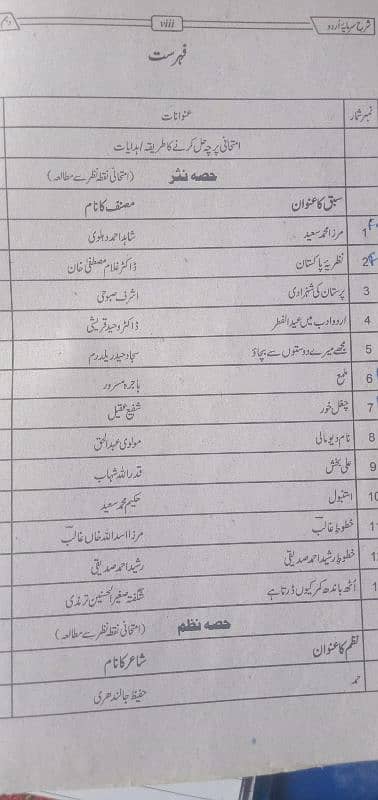 شرح سرمایۂ اردو viii دہم
فہرست
نمبر شمار عنوانات
امتحانی پرچہ حل کرنے کا طریقہ / ہدایات
حصہ نثر (امتحانی نقطۂ نظر سے مطالعہ)
سبق کا عنوان مصنف کا نام
1 مرزا محمد سعید شاہد احمد دہلوی
2 نظریۂ پاکستان ڈاکٹر غلام مصطفیٰ خان
3 پرستان کی شہزادی اشرف صبوحی
4 اردو ادب میں عید الفطر ڈاکٹر وحید قریشی
5 مجھے میرے دوستوں سے بچاؤ سجاد حیدر یلدرم
6 ملمع ہاجرہ مسرور
7 چغل خور شفیع عقیل
8 نام دیو مالی مولوی عبدالحق
9 علی بخش قدرت اللہ شہاب
10 استنبول حکیم محمد سعید
1 خطوطِ غالب مرزا اسد اللہ خاں غالب
1 خطوطِ رشید احمد صدیقی رشید احمد صدیقی
1 اُٹھ باندھ کمر کیوں ڈرتا ہے شگفتہ صغیر الحسنین ترمذی
حصہ نظم (امتحانی نقطۂ نظر سے مطالعہ)
نظم کا عنوان شاعر کا نام
حمد حفیظ جالندھری